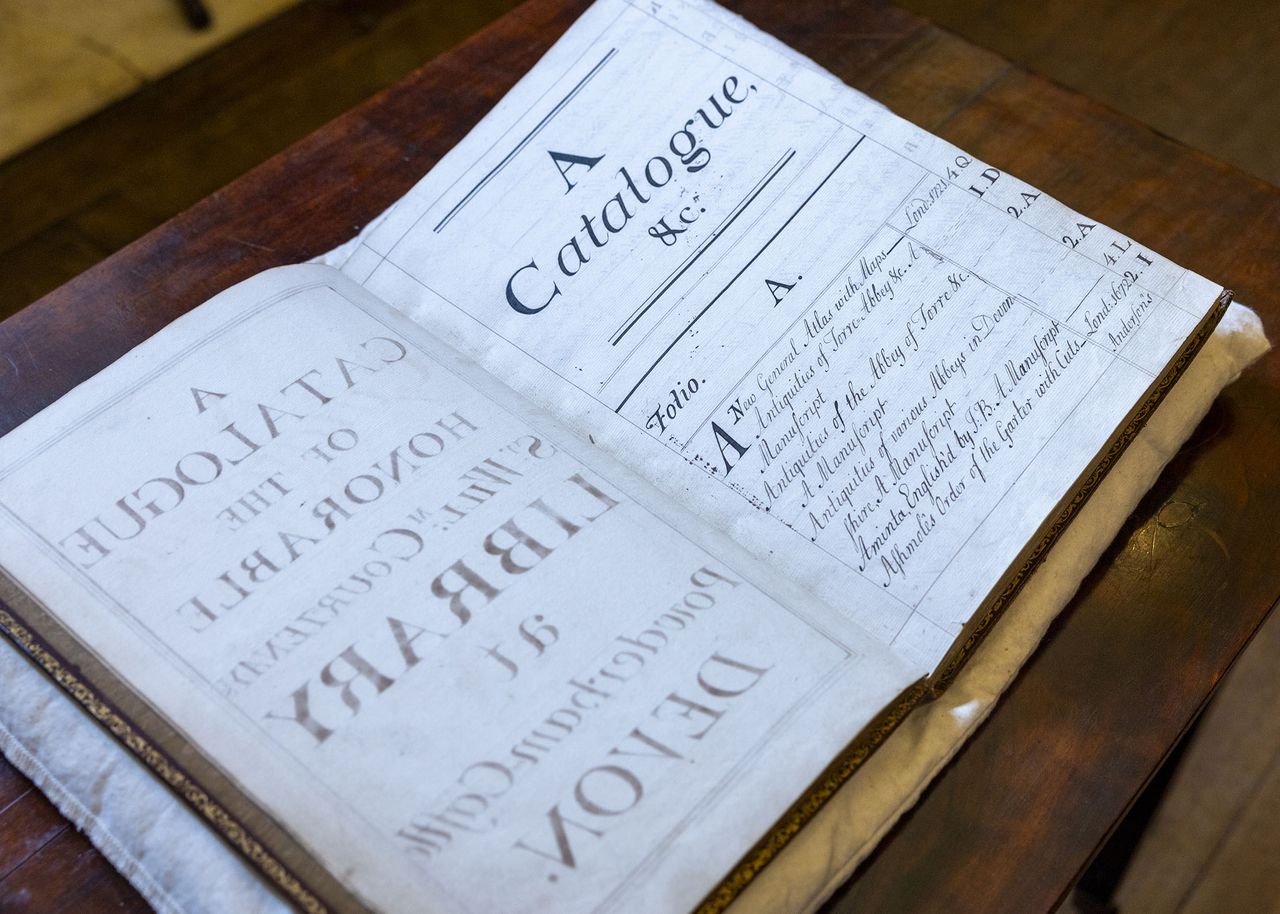 A
CATALOGUE
OF THE
HONORABLE
Sr. WILLm. COURTENAY's
LIBRARY
at
Powderham Castle
DEVON.
A
Catalogue,
&c.r
A.
Folio.
A New General Atlas with Maps Lond: 1721 4 Q
Antiquities of Torre-Abbey &c. A
Manuscript 1 D
Antiquities of the Abbey of Torre &c.
A Manuscript 2. A
Antiquities of various Abbeys in Devon
shire. A Manuscript 2. A
Aminta English'd by J. B. A Manuscript 4. L
Ashmole's Order of the Garter with Cuts Lond: 1672 2. I
Anderson's